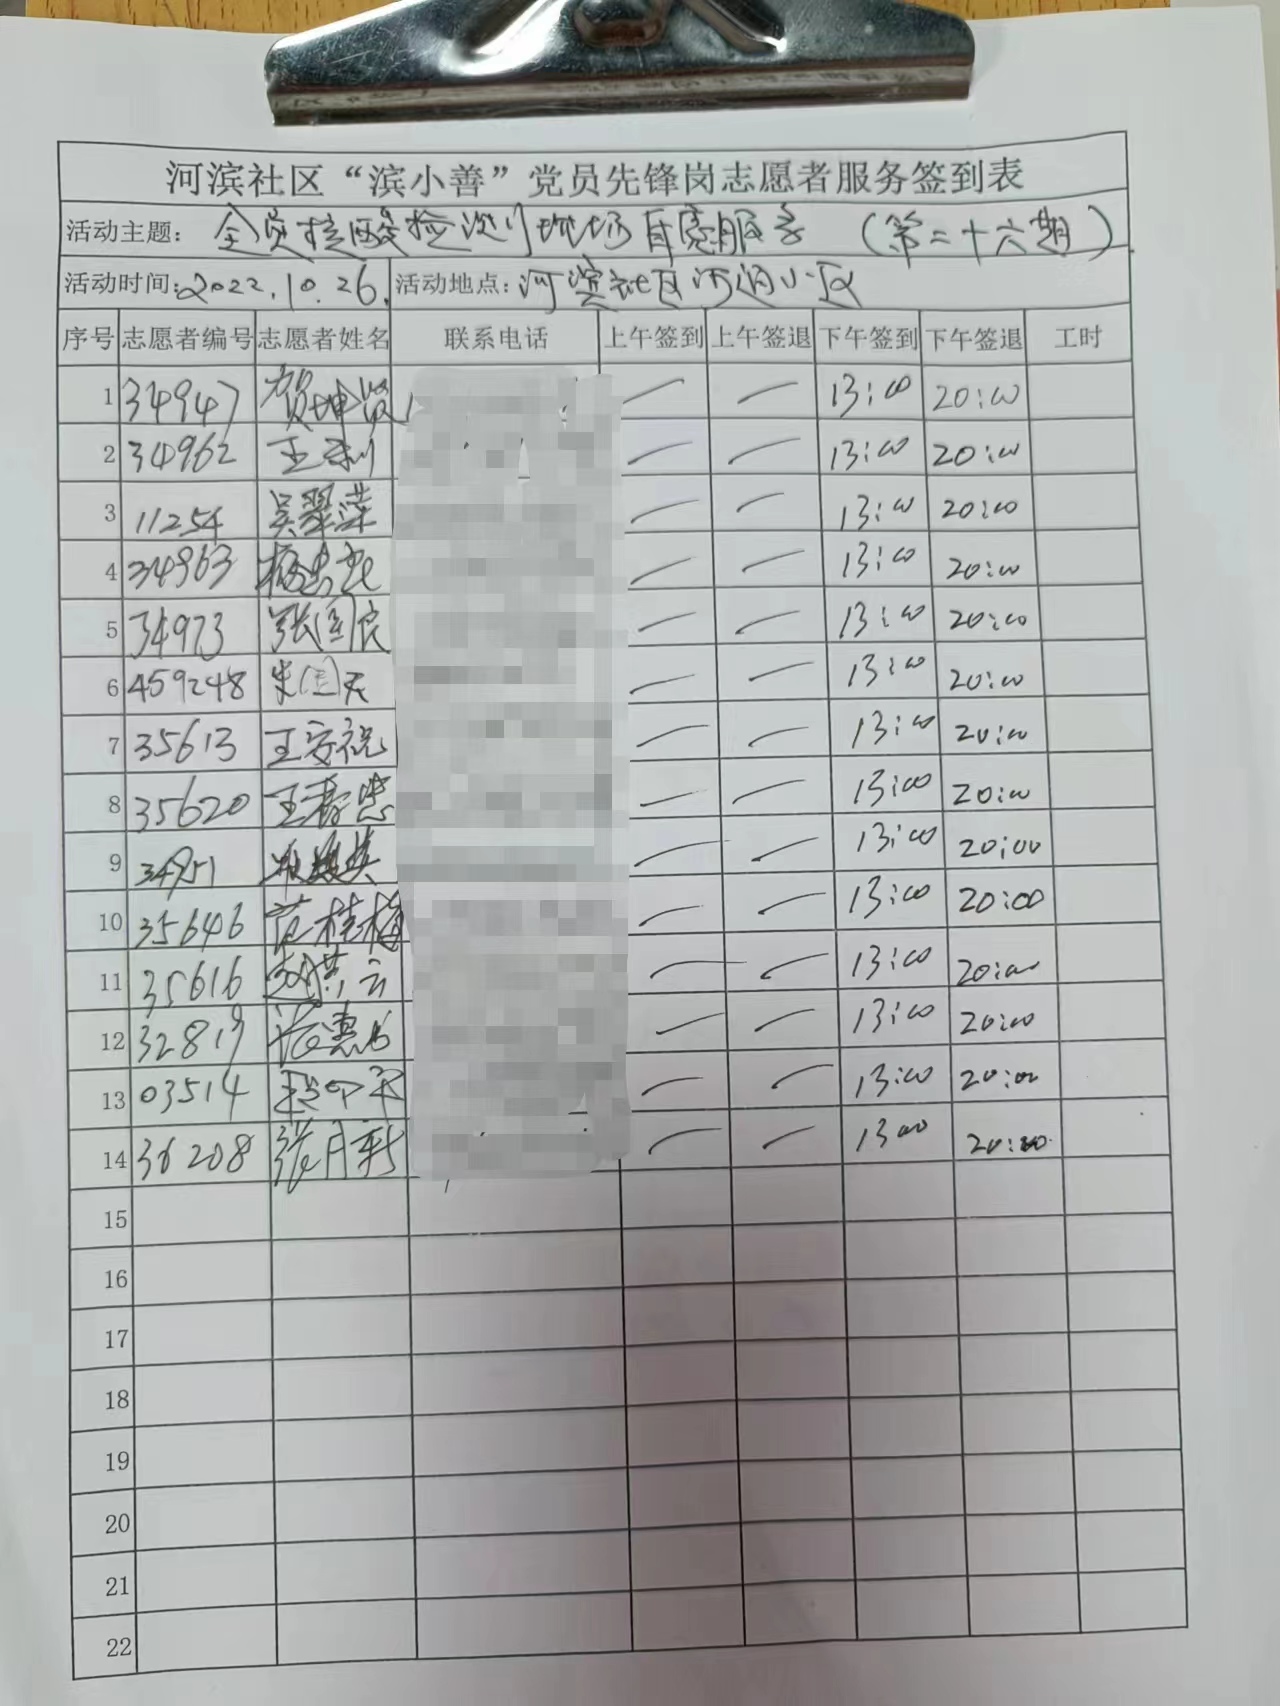 河滨社区“滨小善”党员先锋岗志愿者服务签到表
活动主题: 全员核酸检测现场自愿服务 (第二十六期)
活动时间:2022.10.26. 活动地点:河滨社区河润小区
序号 志愿者编号 志愿者姓名 联系电话 上午签到 上午签退 下午签到 下午签退 工时
1 34947 贺坤贤 — — 13:00 20:00
2 34962 王利 — — 13:00 20:00
3 11254 吴翠萍 — — 13:00 20:00
4 34963 — — 13:00 20:00
5 34973 张国良 — — 13:00 20:00
6 459248 朱国天 — — 13:00 20:00
7 35613 王安祝 — — 13:00 20:00
8 35620 王春忠 — — 13:00 20:00
9 34951 — — 13:00 20:00
10 35646 范桂梅 — — 13:00 20:00
11 35616 赵洪云 — — 13:00 20:00
12 32819 — — 13:00 20:00
13 03514 — — 13:00 20:00
14 36208 张月新 — — 13 00 20:00
15
16
17
18
19
20
21
22